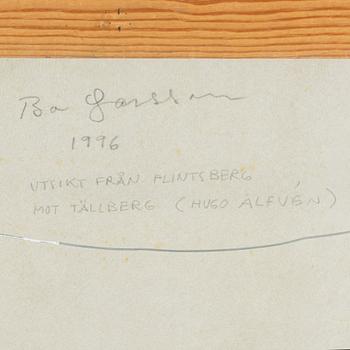 Bo Larsson
1996
UTSIKT FRÅN FLINTSBERG
MOT TÄLLBERG (HUGO ALFVÉN)